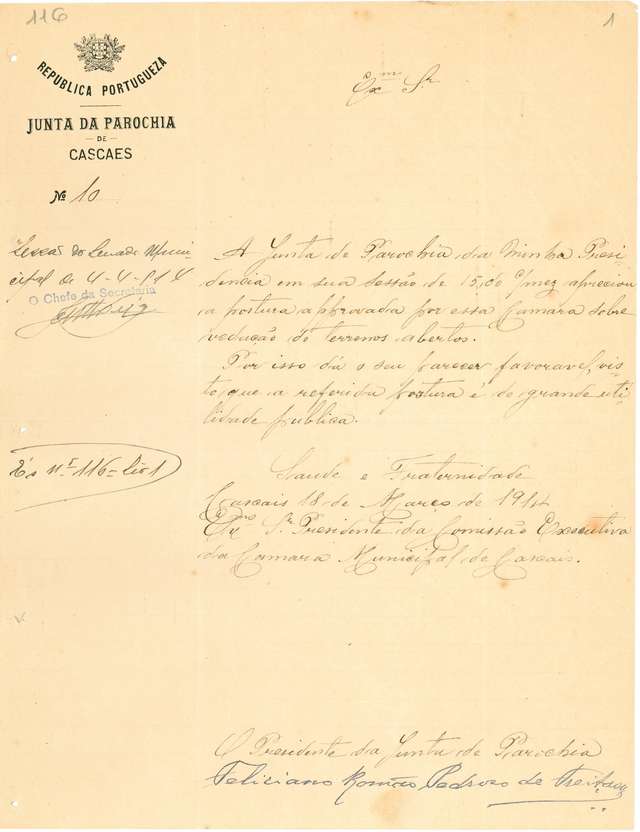 116
1
REPUBLICA PORTUGUEZA
JUNTA DA PAROCHIA
DE
CASCAES
Nº 10
Exmº Sr
Sessão do Senado Muni
cipal de 4-4-914
O Chefe da Secretaria
A Junta de Parochia da minha Presi
dencia em sua sessão de 15, do c/mez apreciou
a postura approvada por essa Camara sobre
vedação de terrenos abertos.
Por isso dá o seu parecer favoravel, vis-
to que a referida postura é de grande uti
lidade publica.
nº 116
Saude e Fraternidade
Cascais 18 de Março de 1914
Sr Presidente da Comissão Executiva
da Camara Municipal de Cascais.
O Presidente da Junta de Parochia
Feliciano Romão Pedroso de Freitas